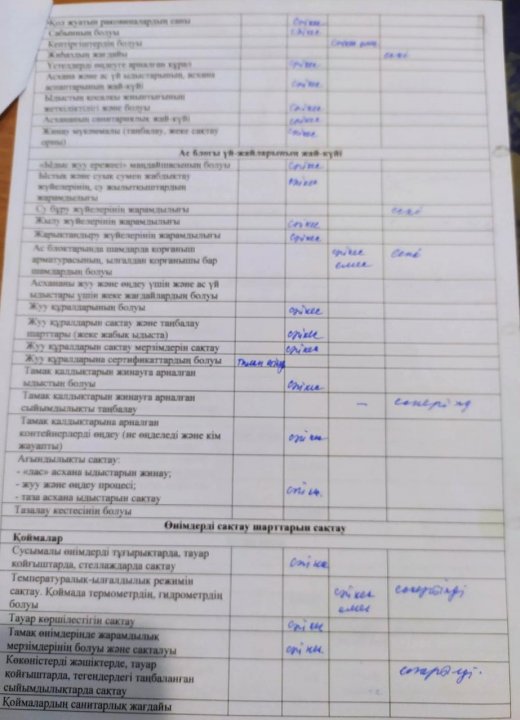 Қол жуатын раковиналардың саны сәйкес
Сабынның болуы сәйкес
Кептіргіштердің болуы
Жиһаздың жағдайы
Үстелдерді өңдеуге арналған құрал сәйкес
Асхана және ас үй ыдыстарының, асхана
аспаптарының жай-күйі сәйкес
Ыдыстың қосалқы жиынтығының
жеткіліктілігі және болуы сәйкес
Асхананың санитариялық жай-күйі сәйкес
Жинау мүкәммалы (таңбалау, жеке сақтау сәйкес
орны)
Ас блогы үй-жайларының жай-күйі
«Ыдыс жуу ережесі» маңдайшасының болуы сәйкес
Ыстық және суық сумен жабдықтау сәйкес
жүйелерінің, су жылытқыштардың
жарамдылығы
Су бұру жүйелерінің жарамдылығы
Жылу жүйелерінің жарамдылығы сәйкес
Жарықтандыру жүйелерінің жарамдылығы сәйкес
Ас блоктарында шамдарда қорғаныш сәйкес
арматурасының, ылғалдан қорғанышы бар емес
шамдардың болуы
Асхананы жуу және өңдеу үшін және ас үй
ыдыстары үшін жеке жағдайлардың болуы
Жуу құралдарының болуы сәйкес
Жуу құралдарын сақтау және таңбалау
шарттары (жеке жабық ыдыста) сәйкес
Жуу құралдарын сақтау мерзімдерін сақтау сәйкес
Жуу құралдарына сертификаттардың болуы
Тамақ қалдықтарын жинауға арналған
ыдыстың болуы сәйкес
Тамақ қалдықтарын жинауға арналған
сыйымдылықты таңбалау –
Тамақ қалдықтарына арналған
контейнерлерді өңдеу (не өңделеді және кім сәйкес
жауапты)
Ағындылықты сақтау:
- «лас» асхана ыдыстарын жинау;
- жуу және өңдеу процесі;
- таза асхана ыдыстарын сақтау
Тазалау кестесінің болуы
Өнімдерді сақтау шарттарын сақтау
Қоймалар
Сусымалы өнімдерді тұғырықтарда, тауар
қойғыштарда, стеллаждарда сақтау
Температуралық-ылғалдылық режимін сәйкес
сақтау. Қоймада термометрдің, гидрометрдің емес
болуы
Тауар көршілестігін сақтау сәйкес
Тамақ өнімдерінде жарамдылық
мерзімдерінің болуы және сақталуы сәйкес
Көкөністерді жәшіктерде, тауар
қойғыштарда, тегендердегі таңбаланған
сыйымдылықтарда сақтау
Қоймалардың санитарлық жағдайы